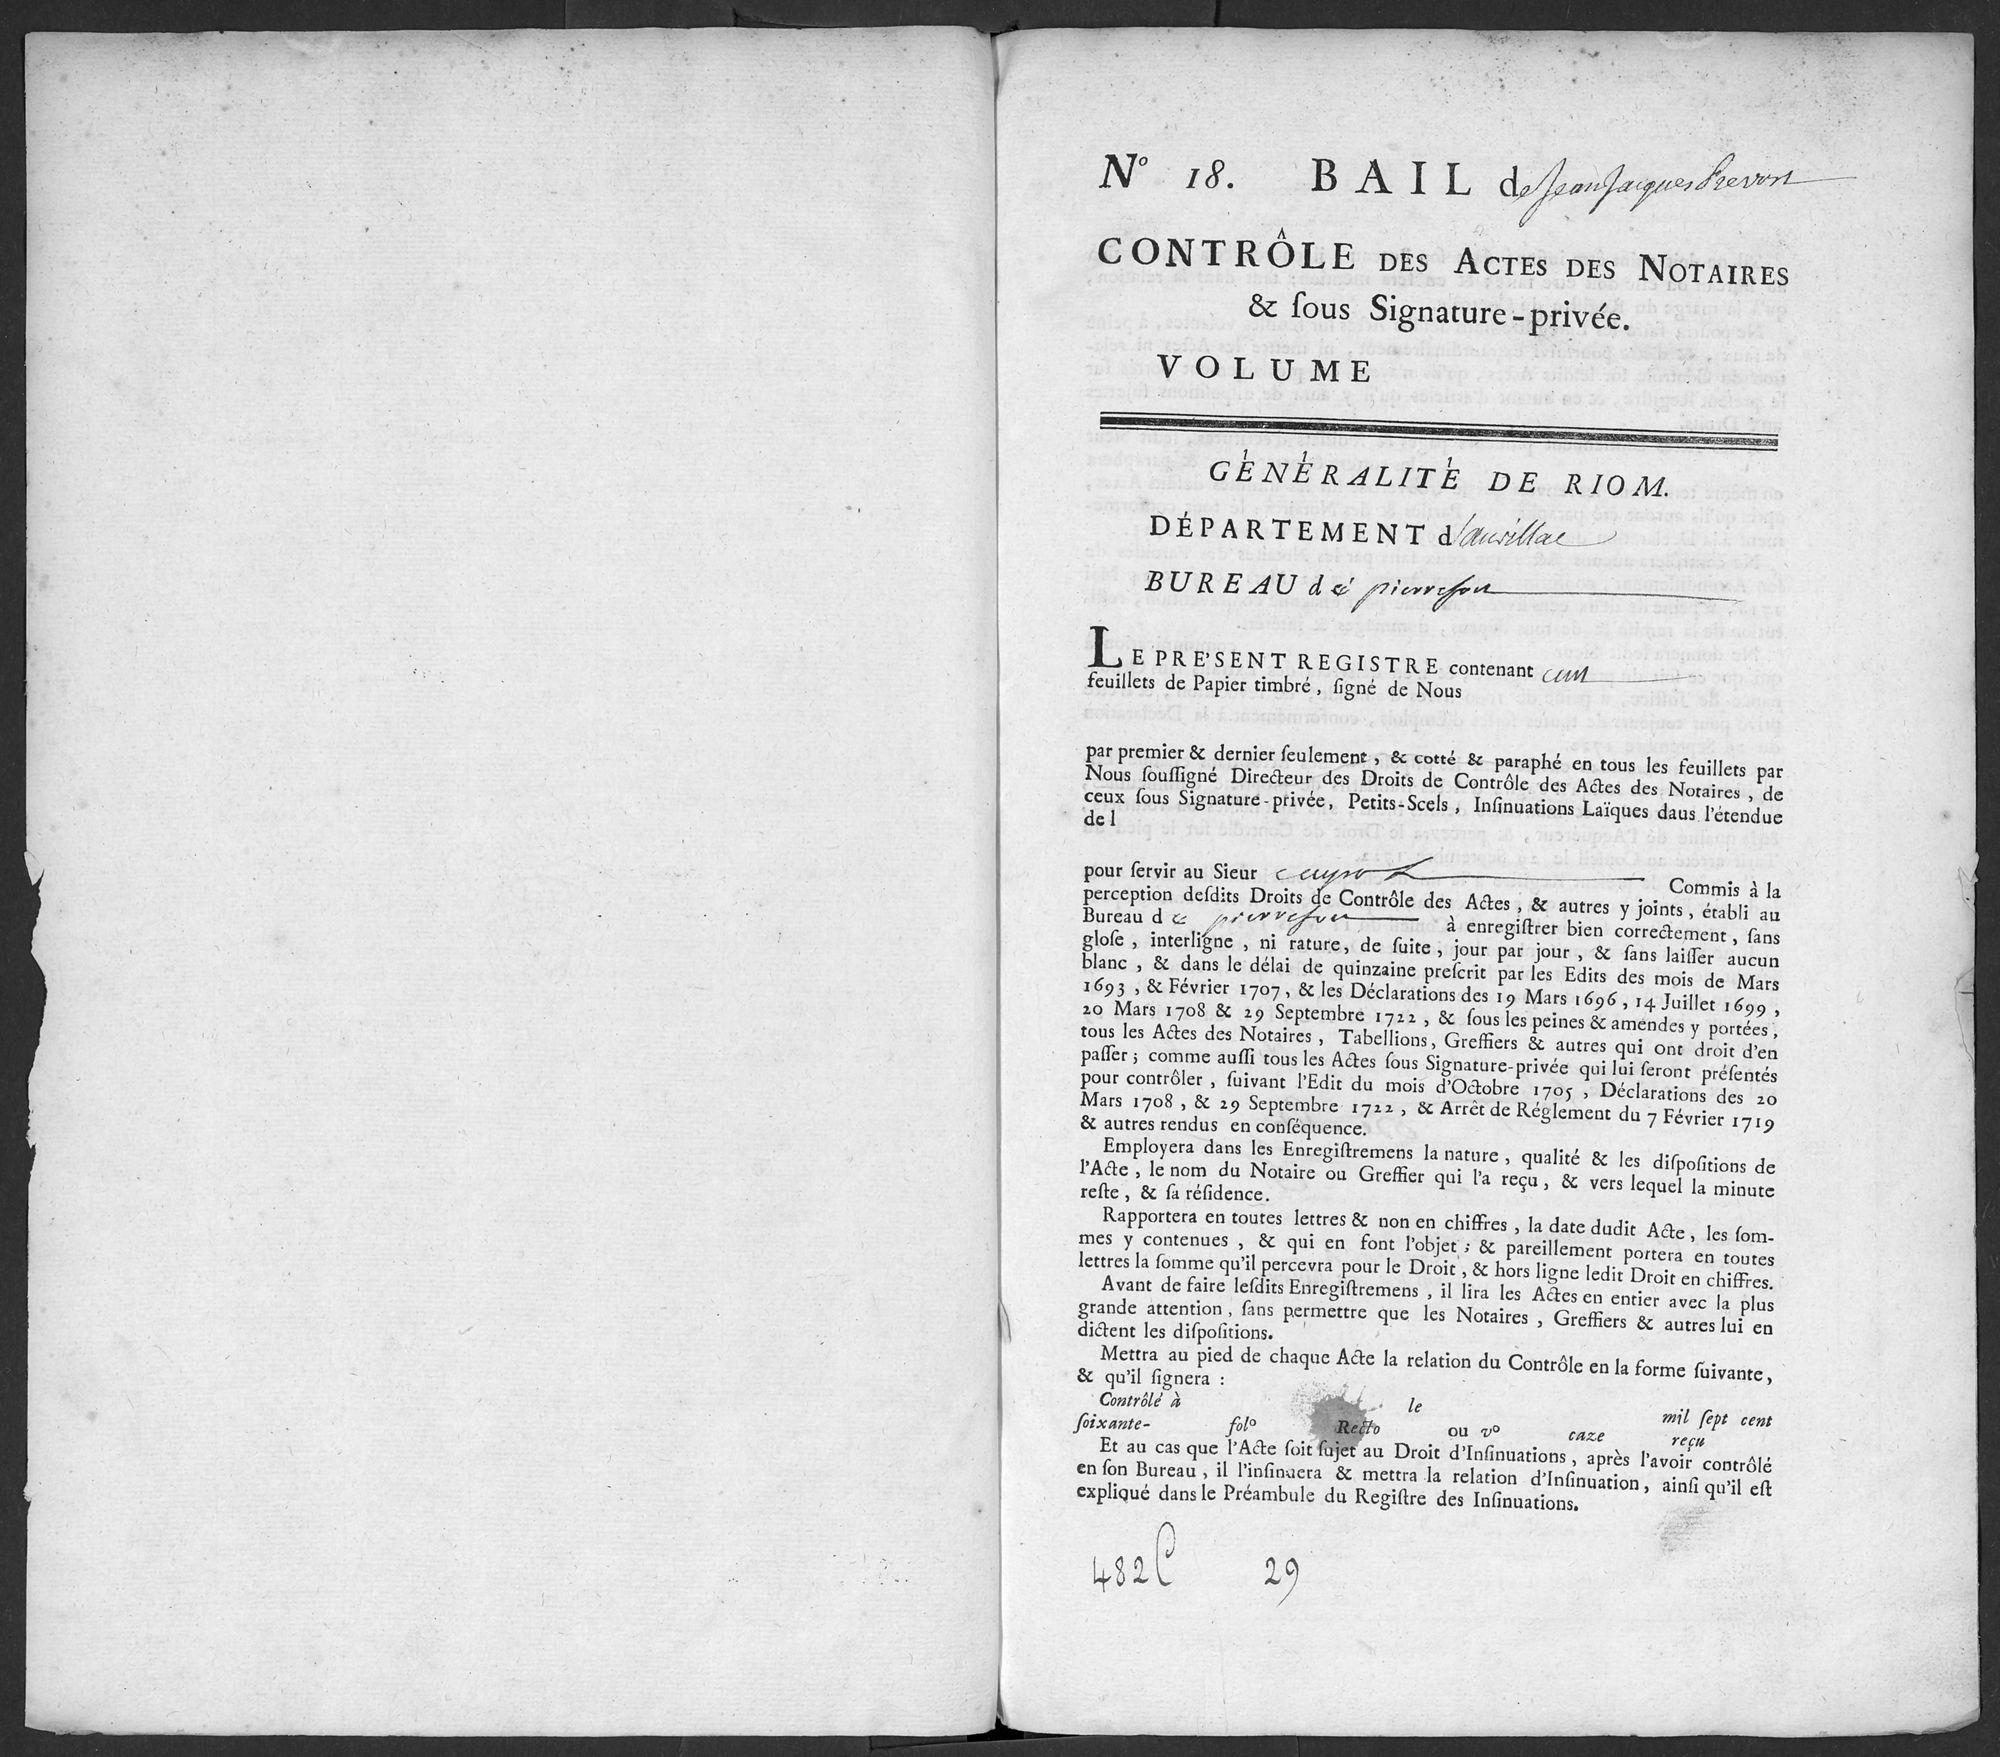 Nº 18. BAIL de Jean Jacques Prevost
CONTRÔLE DES ACTES DES NOTAIRES
& ſous Signature-privée.
VOLUME
GÉNÉRALITÉ DE RIOM.
DÉPARTEMENT d'aurillac
BUREAU de pierrefort
LE PRE'SENT REGISTRE contenant cent
feuillets de Papier timbré, ſigné de Nous
par premier & dernier ſeulement, & cotté & paraphé en tous les feuillets par
Nous ſouſſigné Directeur des Droits de Contrôle des Actes des Notaires, de
ceux ſous Signature-privée, Petits-Scels, Inſinuations Laïques daus l'étendue
de l
pour ſervir au Sieur Commis à la
perception deſdits Droits de Contrôle des Actes, & autres y joints, établi au
Bureau de pierrefort à enregiſtrer bien correctement, ſans
gloſe, interligne, ni rature, de ſuite, jour par jour, & ſans laiſſer aucun
blanc, & dans le délai de quinzaine preſcrit par les Edits des mois de Mars
1693, & Février 1707, & les Déclarations des 19 Mars 1696, 14 Juillet 1699,
20 Mars 1708 & 29 Septembre 1722, & ſous les peines & amendes y portées,
tous les Actes des Notaires, Tabellions, Greffiers & autres qui ont droit d'en
paſſer; comme auſſi tous les Actes ſous Signature-privée qui lui ſeront préſentés
pour contrôler, ſuivant l'Edit du mois d'Octobre 1705, Déclarations des 20
Mars 1708, & 29 Septembre 1722, & Arrêt de Réglement du 7 Février 1719
& autres rendus en conſéquence.
Employera dans les Enregiſtremens la nature, qualité & les diſpoſitions de
l'Acte, le nom du Notaire ou Greffier qui l'a reçu, & vers lequel la minute
reſte, & ſa réſidence.
Rapportera en toutes lettres & non en chiffres, la date dudit Acte, les ſom-
mes y contenues, & qui en font l'objet; & pareillement portera en toutes
lettres la ſomme qu'il percevra pour le Droit, & hors ligne ledit Droit en chiffres.
Avant de faire leſdits Enregiſtremens, il lira les Actes en entier avec la plus
grande attention, ſans permettre que les Notaires, Greffiers & autres lui en
dictent les diſpoſitions.
Mettra au pied de chaque Acte la relation du Contrôle en la forme ſuivante,
& qu'il ſignera :
Contrôlé à le mil ſept cent
ſoixante- folº Recto ou vº caze reçu
Et au cas que l'Acte ſoit ſujet au Droit d'Inſinuations, après l'avoir contrôlé
en ſon Bureau, il l'inſinuera & mettra la relation d'Inſinuation, ainſi qu'il eſt
expliqué dans le Préambule du Regiſtre des Inſinuations.
482C 29